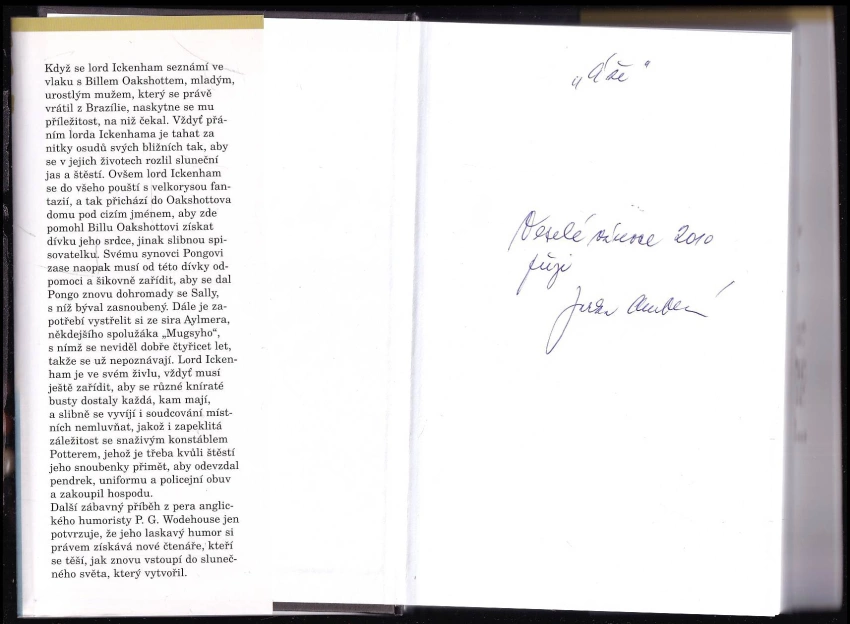 Když se lord Ickenham seznámí ve
vlaku s Billem Oakshottem, mladým,
urostlým mužem, který se právě
vrátil z Brazílie, naskytne se mu
příležitost, na niž čekal. Vždyť přá-
ním lorda Ickenhama je tahat za
nitky osudů svých bližních tak, aby
se v jejich životech rozlil sluneční
jas a štěstí. Ovšem lord Ickenham
se do všeho pouští s velkorysou fan-
tazií, a tak přichází do Oakshottova
domu pod cizím jménem, aby zde
pomohl Billu Oakshottovi získat
dívku jeho srdce, jinak slibnou spi-
sovatelku. Svému synovci Pongovi
zase naopak musí od této dívky od-
pomoci a šikovně zařídit, aby se dal
Pongo znovu dohromady se Sally,
s níž býval zasnoubený. Dále je za-
potřebí vystřelit si ze sira Aylmera,
někdejšího spolužáka „Mugsyho“,
s nímž se neviděl dobře čtyřicet let,
takže se už nepoznávají. Lord Icken-
ham je ve svém živlu, vždyť musí
ještě zařídit, aby se různé kníraté
busty dostaly každá, kam mají,
a slibně se vyvíjí i soudcování míst-
ních nemluvňat, jakož i zapeklitá
záležitost se snaživým konstáblem
Potterem, jehož je třeba kvůli štěstí
jeho snoubenky přimět, aby odevzdal
pendrek, uniformu a policejní obuv
a zakoupil hospodu.
Další zábavný příběh z pera anglic-
kého humoristy P. G. Wodehouse jen
potvrzuje, že jeho laskavý humor si
právem získává nové čtenáře, kteří
se těší, jak znovu vstoupí do sluneč-
ného světa, který vytvořil.
Veselé vánoce 2010